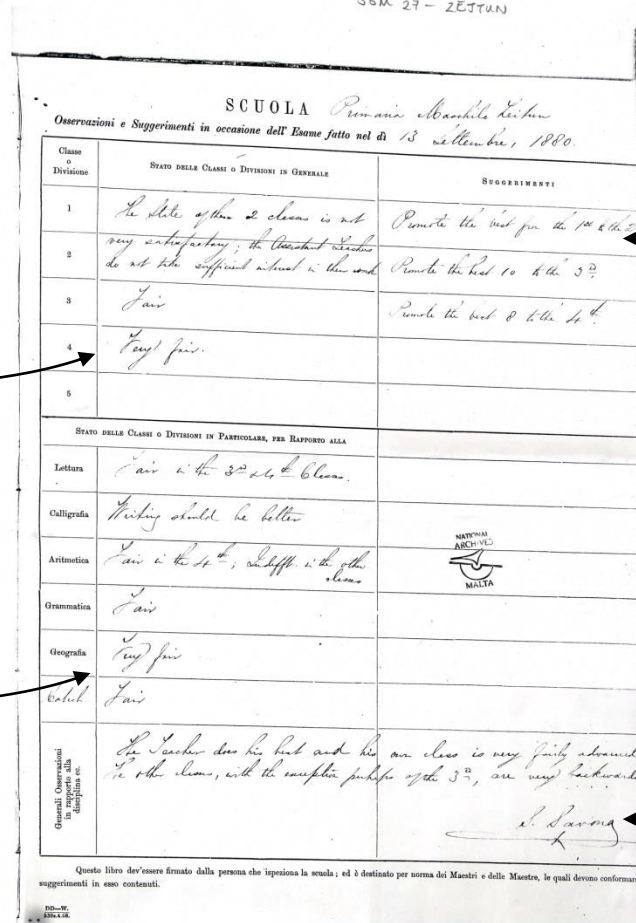 27 - ZEJTUN
SCUOLA Primaria Maschile Zeitun
Osservazioni e Suggerimenti in occasione dell' Esame fatto nel dì 13 Settembre, 1880.
Classe
o
Divisione
STATO DELLE CLASSI O DIVISIONI IN GENERALE
SUGGERIMENTI
1
The State of these 2 classes is not
Promote the best for the 1st to the
2
very satisfactory; the Assistant Teachers
do not take sufficient interest in their work
Promote the best 10 to the 3d.
3
Fair
Promote the best 8 to the 4th.
4
Very fair.
5
STATO DELLE CLASSI O DIVISIONI IN PARTICOLARE, PER RAPPORTO ALLA
Lettura
Fair in the 3d & 4th Classes.
Calligrafia
Writing should be better
Aritmetica
Fair in the 4th; Indifft. in the other
classes
NATIONAL
ARCHIVES
MALTA
Grammatica
Fair
Geografia
Very fair
Catech.
Fair
Generali Osservazioni
in rapporto alla
disciplina ec.
The Teacher does his best and his own class is very fairly advanced
The other classes, with the exception perhaps of the 3d, are very backward
S. Savona
Questo libro dev'essere firmato dalla persona che ispeziona la scuola; ed è destinato per norma dei Maestri e delle Maestre, le quali devono conformar
suggerimenti in esso contenuti.
DD—W.